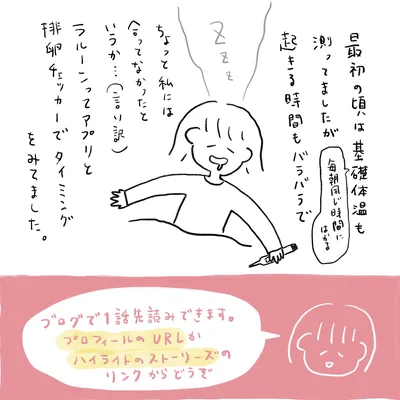 最初の頃は基礎体温も
測ってましたが
毎朝同じ時間に
はかる
起きる時間もバラバラで
Z
Z
Z
ちょっと私には
合ってなかったと
いうか…(言い訳)
ラルーンってアプリと
排卵チェッカーでタイミング
をみてました。
ブログで1話先読みできます。
プロフィールのURLか
ハイライトのストーリーズの
リンクからどうぞ